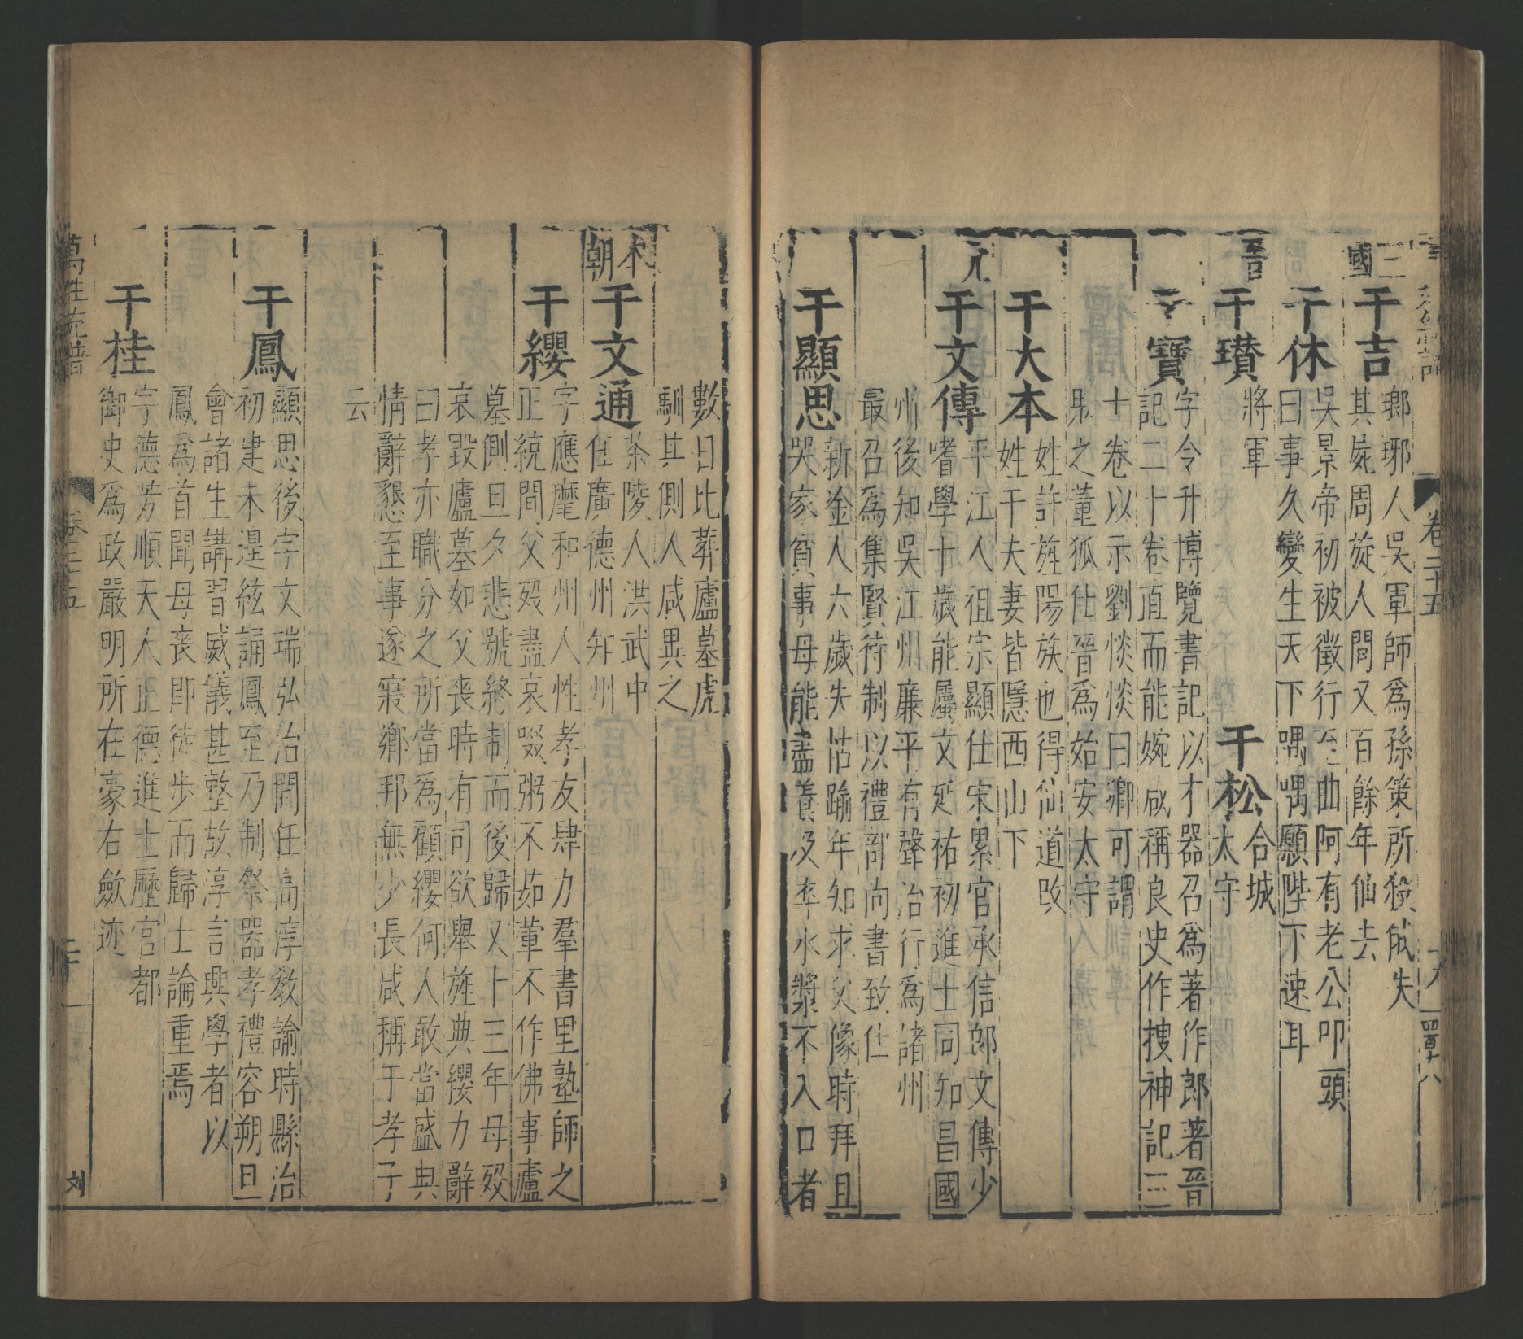 卷二十五
三國
干吉
瑯琊人吳軍師爲孫策所殺俄失
其屍周旋人間又百餘年仙去
干休
吳景帝初被徵行至曲阿有老公叩頭
曰事久變生天下喁喁願陛下速耳
晉
干瓚
將軍
干松
合城
太守
干寶
字令升博覽書記以才器召爲著作郎著晉
記二十卷直而能婉咸稱良史作搜神記三
十卷以示劉惔惔曰卿可謂
鬼之董狐仕晉爲始安太守
干大本
姓許旌陽族也得仙道改
姓干夫妻皆隱西山下
元
干文傳
平江人祖宗顯仕宋累官承信郎文傳少
嗜學十歲能屬文延祐初進士同知昌國
州後知吳江州廉平有聲治行爲諸州
最召爲集賢待制以禮部尚書致仕
干顯思
新淦人六歲失怙踰年知求父像時拜且
哭家貧事母能盡養及卒水漿不入口者
數日比葬廬墓虎
馴其側人咸異之
本朝
干文通
茶陵人洪武中
任廣德州知州
干纓
字應麾和州人性孝友肆力羣書里塾師之
正統間父歿盡哀啜粥不茹葷不作佛事廬
墓側旦夕悲號終制而後歸又十三年母歿
哀毀廬墓如父喪時有司欲舉旌典纓力辭
曰孝亦職分之所當爲顧纓何人敢當盛典
情辭懇至事遂寢鄉邦無少長咸稱干孝子
云
干鳳
顯思後字文瑞弘治間任高淳教諭時縣治
初建未遑絃誦鳳至乃制祭器孝禮容朔旦
會諸生講習威儀甚整故淳言興學者以
鳳爲首聞母喪即徒步而歸士論重焉
干桂
字德芳順天人正德進士歷官都
御史爲政嚴明所在豪右斂迹
萬姓統譜
卷二十五